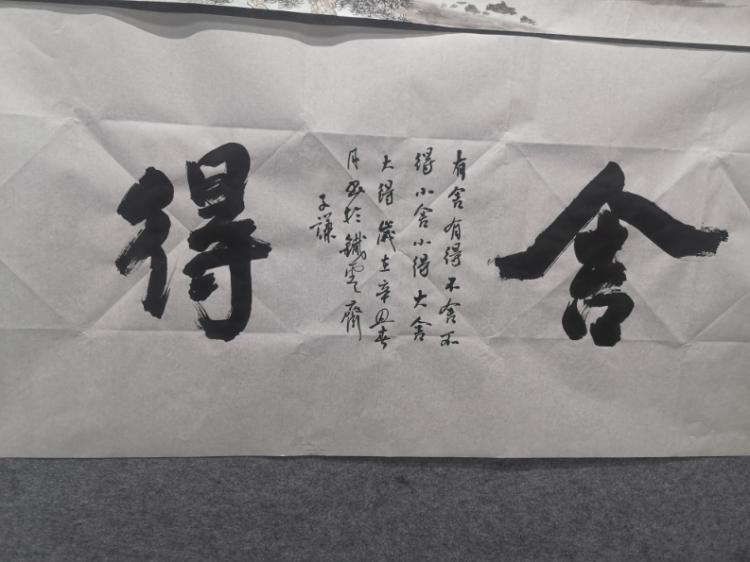 舍
有舍有得不舍不
得小舍小得大舍
大得 歲在辛丑春
月書於鐵雲齋
子謙
得